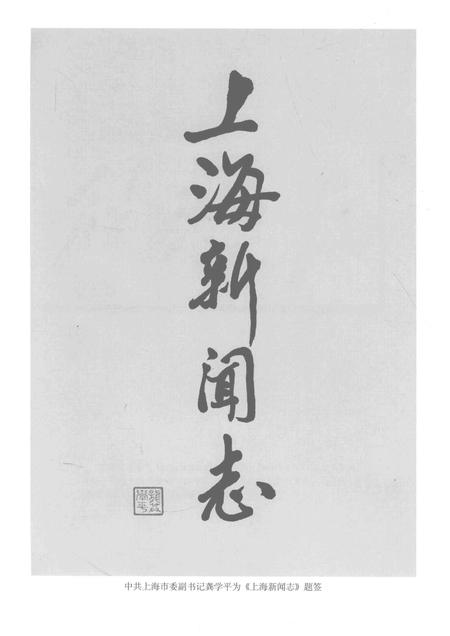 上海新闻志
中共上海市委副书记龚学平为《上海新闻志》题签